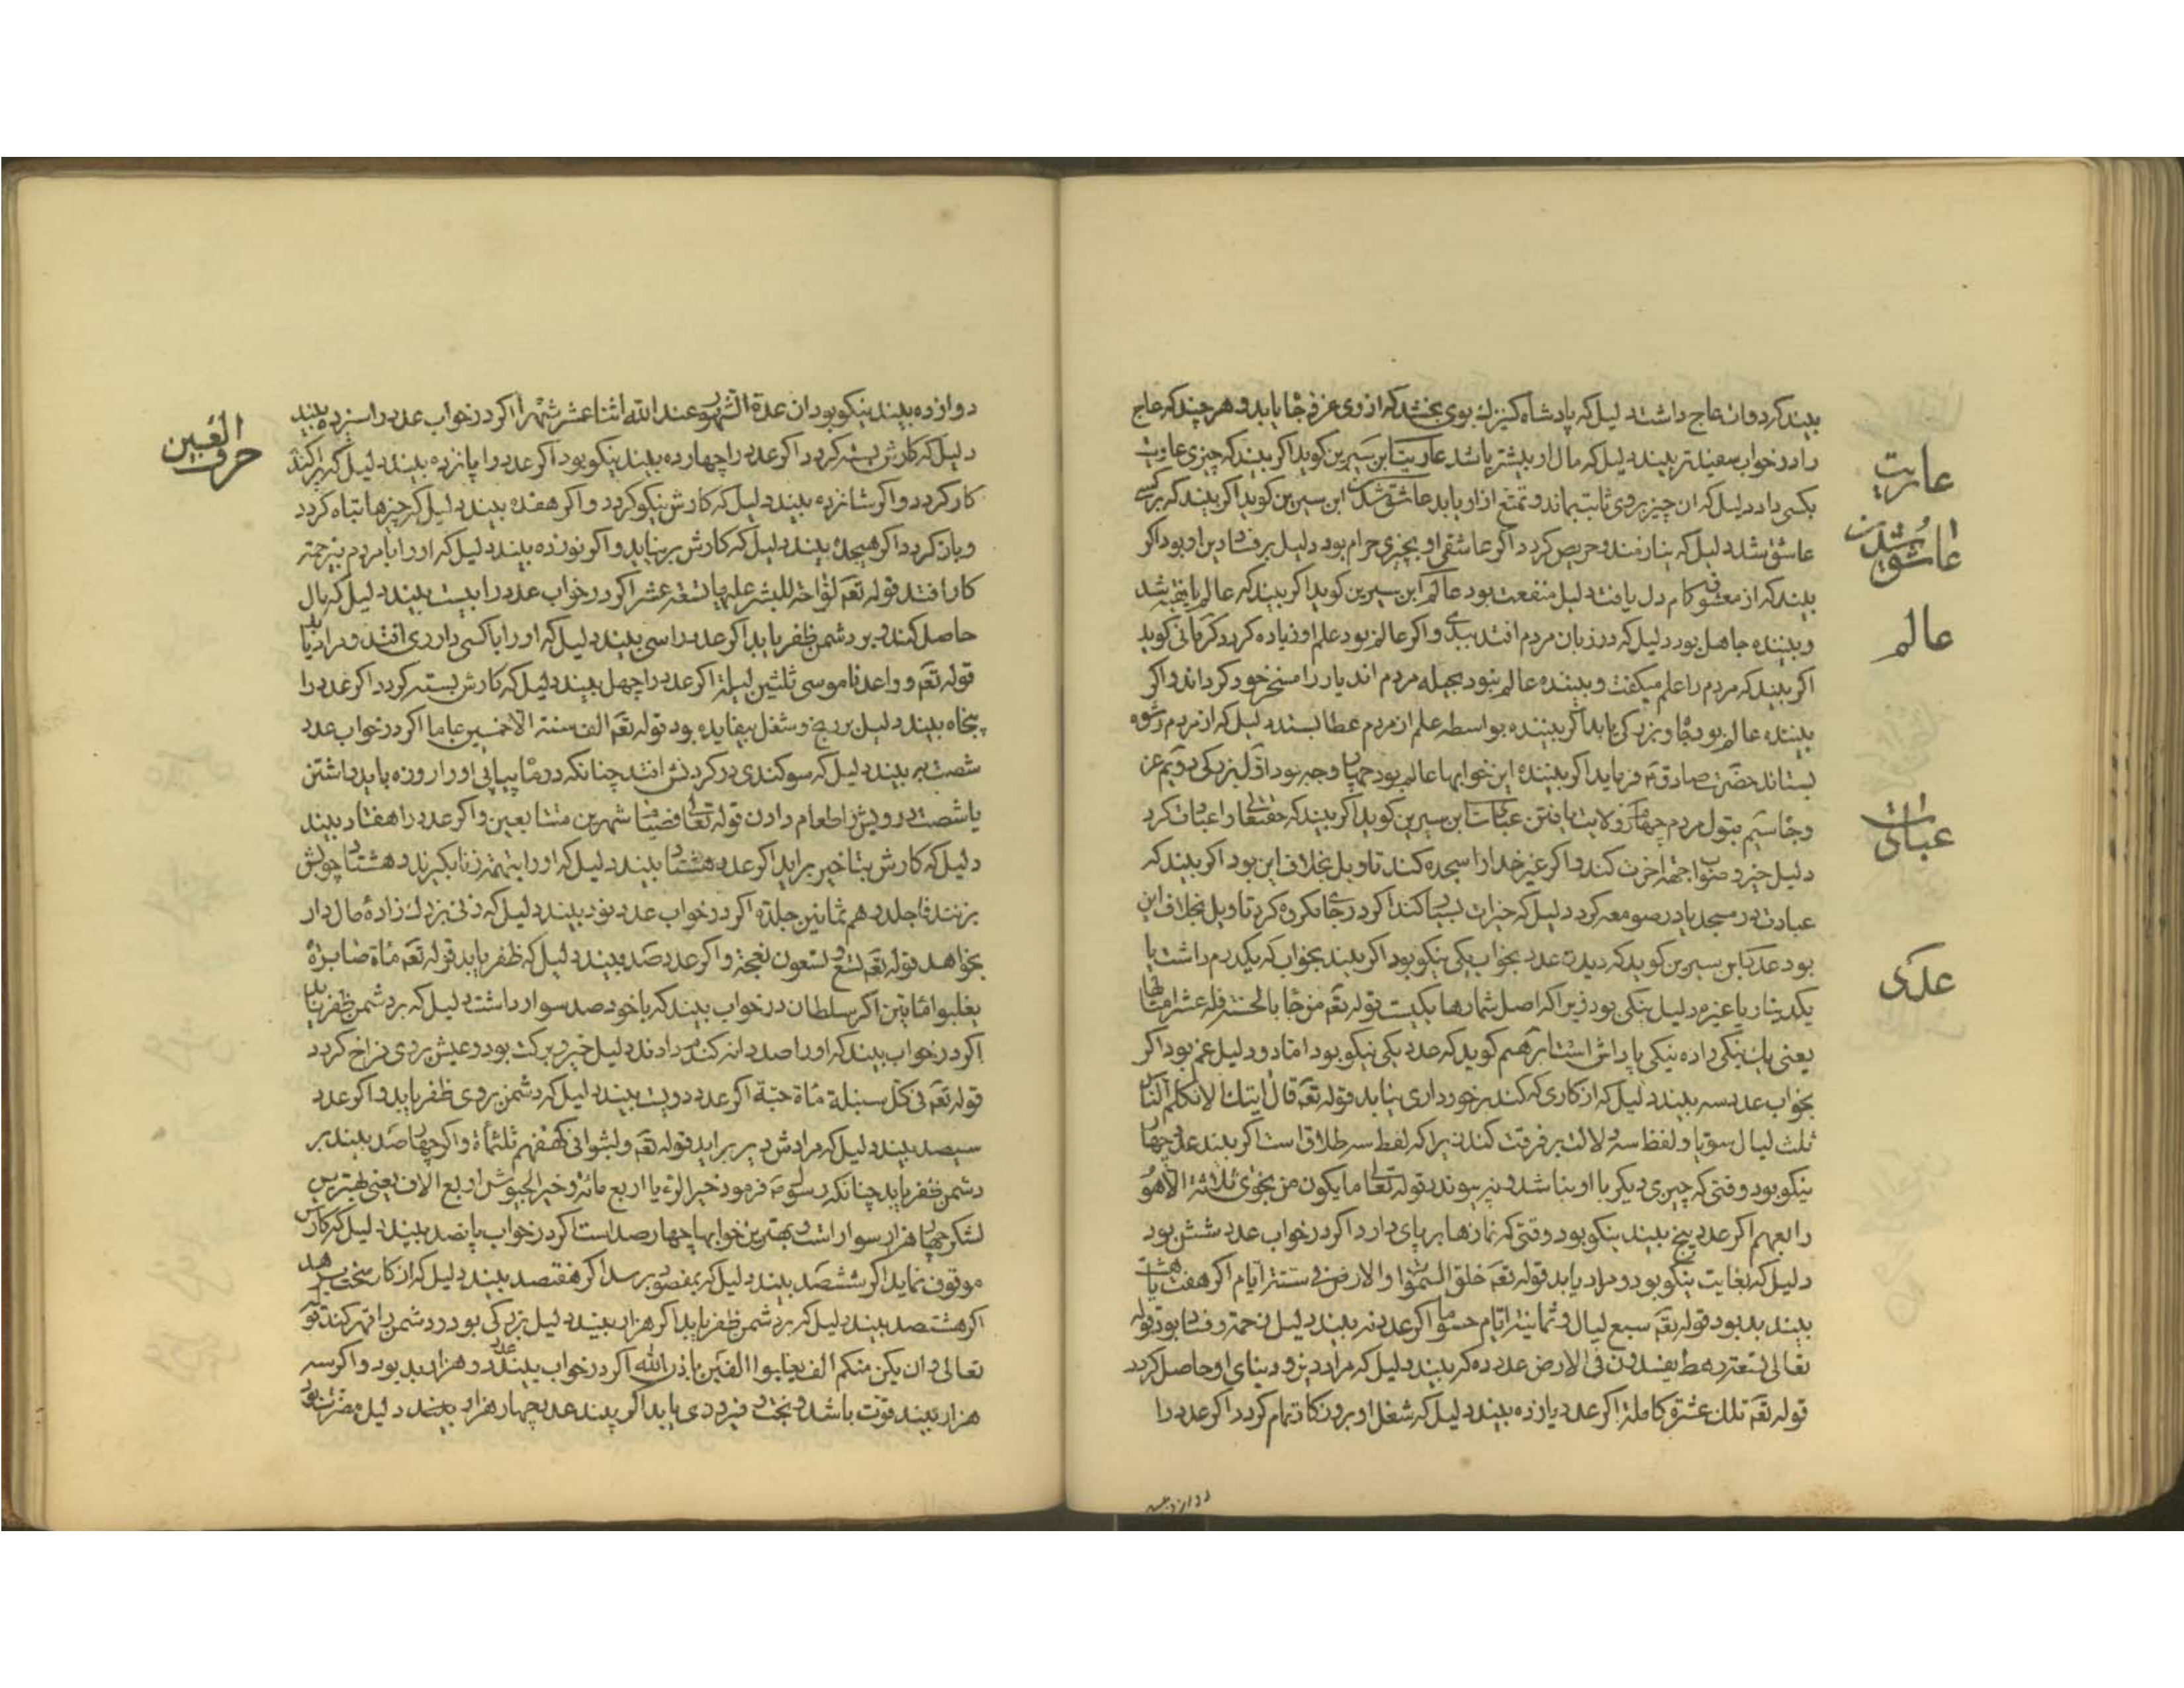 بیند کردوان عاج داشت دلیل که پادشاه کنیزک بوی بخشد که از وی عز و جاه یابد و هر چند که عاج
را در خواب سفیدتر بیند دلیل که مال او بیشتر باشد عاریت ابن سیرین کوید اکر بیند که چیزی عاریت
بکسی داد دلیل که ان چیز بروی ثابت بماند و تمتع از او یابد عاشق شدن ابن سیرین کوید اکر بیند که بر کسی
عاشق شد دلیل که نیازمند و حریص کردد اکر عاشقی او بچیزی حرام بود دلیل بر فساد دین او بود اکر
بیند که از معشوق کام دل یافت دلیل منفعت بود عالم ابن سیرین کوید اکر بیند که عالم یا فقیه شد
و بیننده جاهل بود دلیل که در زبان مردم افتد ببدی و اکر عالم بود علم او زیاده کردد کرمانی کوید
اکر بیند که مردم را علم میکفت و بیننده عالم نبود بحیله مردم اندیار را مسخر خود کرداند و اکر
بیننده عالم بود جاه و بزرکی یابد اکر بیننده بواسطه علم از مردم عطا بستد دلیل که از مردم رشوه
بستاند حضرت صادق فرماید اکر بیننده این خوابها عالم بود چهار وجه بود اول بزرکی دویم عز
و جاه سیم قبول مردم چهارم ولایت یافتن عبادت ابن سیرین کوید اکر بیند که حقتعالی را عبادت کرد
دلیل خیر و صواب اجتهاد اخرت کند و اکر غیر خدا را سجده کند تاویل بخلاف این بود اکر بیند که
عبادت در مسجد یا در صومعه کرد دلیل که خیرات بسیار کند اکر در جای مکروه کرد تاویل بخلاف این
بود عدد ابن سیرین کوید که دیدن عدد بخواب یکی نیکو بود اکر بیند بخواب که یکدرم داشت یا
یکدینار یا غیره دلیل نیکی بود زیرا که اصل شمارها یکیست قوله تعه من جاء بالحسنة فله عشر امثالها
یعنی یک نیکی را ده نیکی پاداش است و هم کوید که عدد یکی نیکو بود اما دو دلیل غم بود اکر
بخواب عدد سه بیند دلیل که از کاری که کند برخورداری نیابد قوله تعه قال ایتک الا تکلم الناس
ثلث لیال سویا و لفظ سه دلالت بر فرقت کند زیرا که لفظ سه طلاق است اکر بیند عدد چهار
نیکو بود وقتی که چیزی دیکر با او نباشد و نپیوندد قوله تعالی ما یکون من نجوی ثلاثة الا هو
رابعهم اکر عدد پنج بیند نیکو بود وقتی که نمازها بر پای دارد اکر در خواب عدد شش بود
دلیل که بغایت نیکو بود و مراد یابد قوله تعه خلق السموات والارض فی ستة ایام اکر هفت یا هشت
بیند بد بود قوله تعه سبع لیال و ثمانیة ایام حسوما اکر عدد نه بیند دلیل زحمة و فساد بود قوله
تعالی تسعة رهط یفسدون فی الارض عدد ده کر بیند دلیل که مراد دین و دنیای او حاصل کردد
قوله تعه تلک عشرة کاملة اکر عدد یازده بیند دلیل که شغل او بروزکار تمام کردد اکر عدد را
عاریت
عاشق شدن
عالم
عبادت
عددی
دوازده بیند
دوازده بیند نیکو بود ان عدة الشهور عند الله اثنا عشر شهرا اکر در خواب عدد را سیزده بیند
دلیل که کارش بسته کردد اکر عدد را چهارده بیند نیکو بود اکر عدد را پانزده بیند دلیل که پراکنده
کار کردد و اکر شانزده بیند دلیل که کارش نیکو کردد و اکر هفده بیند دلیل که چیزها تباه کردد
و بان کردد اکر هیجده بیند دلیل که کارش برنیاید و اکر نوزده بیند دلیل که او را با مردم
کار افتد قوله تعه لواحة للبشر علیها تسعة عشر اکر در خواب عدد را بیست بیند دلیل که مال
حاصل کند و بر دشمن ظفر یابد اکر عدد را سی بیند دلیل که او را با کسی داوری افتد و مراد یابد
قوله تعه و واعدنا موسی ثلثین لیلة اکر عدد را چهل بیند دلیل که کارش بسته کردد اکر عدد را
پنجاه بیند دلیل بر رنج و شغل بیفایده بود قوله تعه الف سنة الا خمسین عاما اکر در خواب عدد
شصت بیند دلیل که سوکندی در کردنش افتد چنانکه دو ماه پیاپی او را روزه باید داشتن
یا شصت درویش را طعام دادن قوله تعالی فصیام شهرین متتابعین و اکر عدد را هفتاد بیند
دلیل که کارش بتاخیر براید اکر عدد هشتاد بیند دلیل که او را بتهمة زنا بکیرند و هشتاد چوبش
بزنند فاجلدوهم ثمانین جلدة اکر در خواب عدد نود بیند دلیل که زنی بزرک زاده مال دار
بخواهد قوله تعه تسع و تسعون نعجة و اکر عدد صد بیند دلیل که ظفر یابد قوله تعه مأة صابرة
یغلبوا مأتین اکر سلطان در خواب بیند که با خود صد سوار داشت دلیل که بر دشمن ظفر یابد
اکر در خواب بیند که او را صد دانه کندم دادند دلیل خیر و برکت بود و عیش بروی فراخ کردد
قوله تعه فی کل سنبلة مأة حبة اکر عدد دویست بیند دلیل که دشمن بروی ظفر یابد و اکر عدد
سیصد بیند دلیل که مرادش دیر براید قوله تعه ولبثوا فی کهفهم ثلثمأة و اکر چهارصد بیند بر
دشمن ظفر یابد چنانکه رسول فرمود خیر الرؤیا اربع مائة و خیر الجیوش اربع الاف یعنی بهترین
لشکر چهار هزار سوار است و بهترین خوابها چهارصد است اکر در خواب پانصد بیند دلیل که کارش
موقوف نماید اکر ششصد بیند دلیل که بمقصود برسد اکر هفتصد بیند دلیل که از کار سخت برهد
اکر هشتصد بیند دلیل که بر دشمن ظفر یابد اکر هزار بیند دلیل بزرکی بود و دشمن را قهر کند قوله
تعالی وان یکن منکم الف یغلبوا الفین باذن الله اکر در خواب بیند عدد دو هزار بد بود و اکر سه
هزار بیند قوت باشد و بخت و فیروزی یابد اکر بیند عدد چهار هزار بیند دلیل مضرت بود
حرف العین